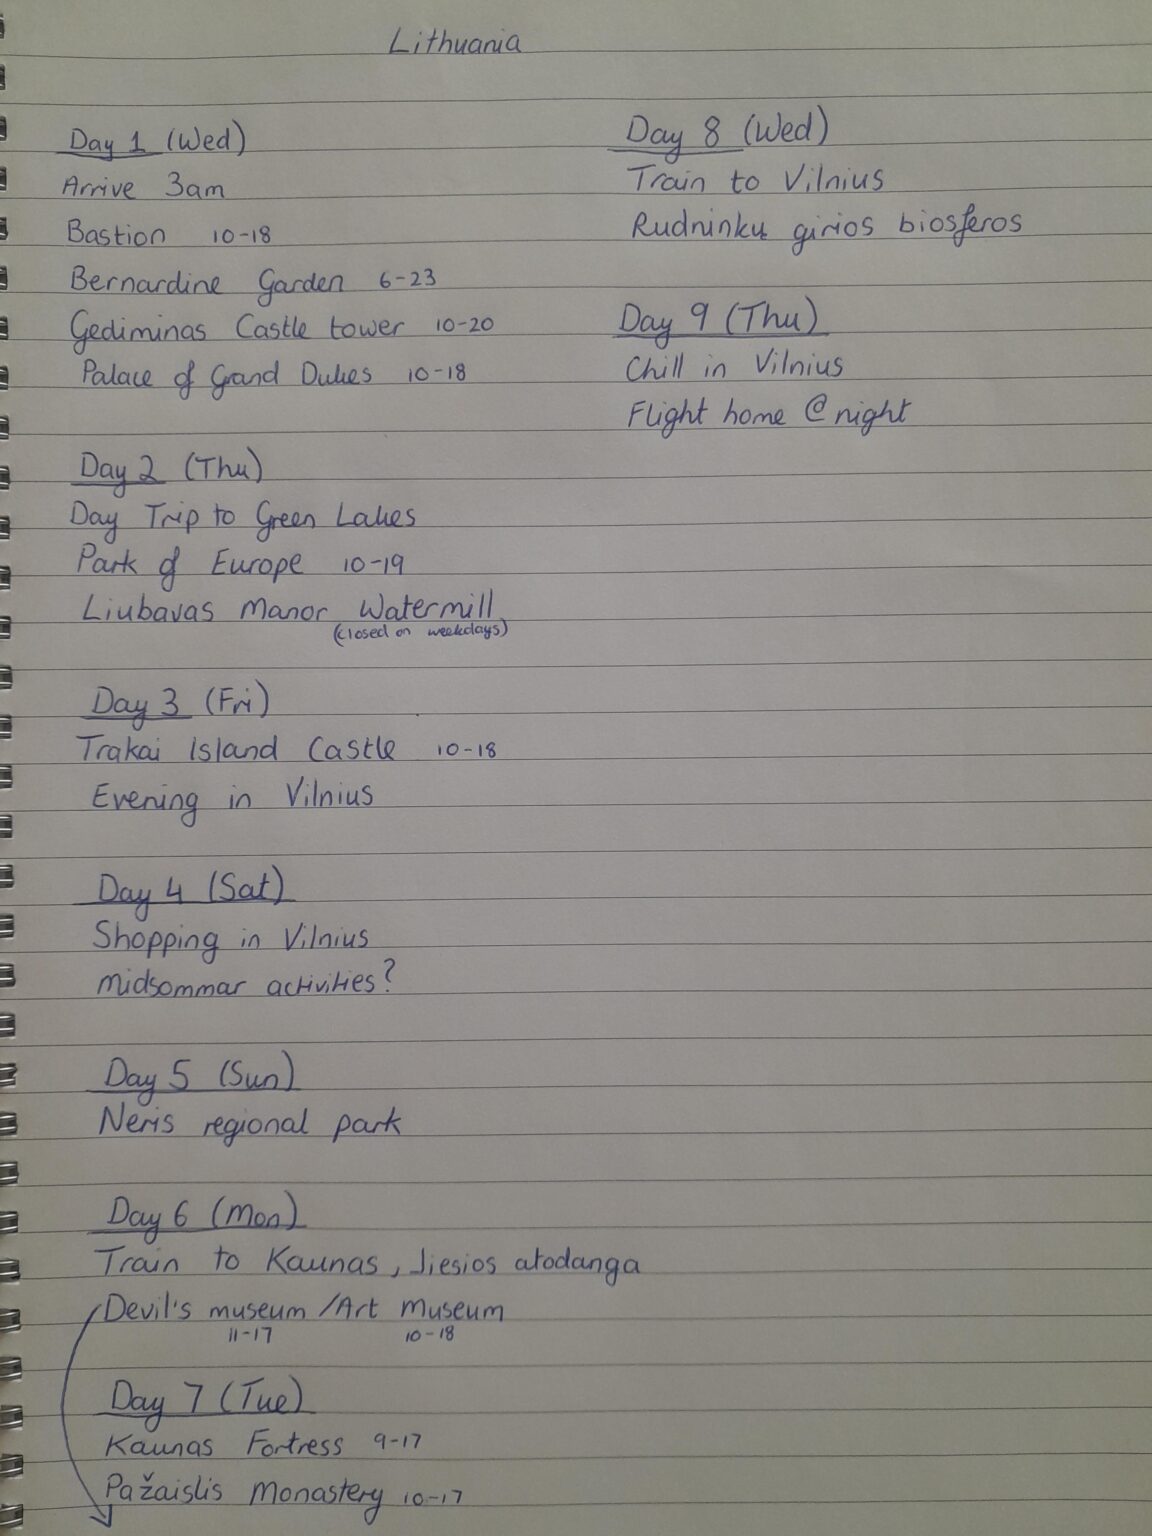 Lithuania
Day 1 (Wed)
Arrive 3am
Bastion 10-18
Bernardine Garden 6-23
Gediminas Castle tower 10-20
Palace of Grand Dukes 10-18
Day 2 (Thu)
Day Trip to Green Lakes
Park of Europe 10-19
Liubavas Manor Watermill
(closed on weekdays)
Day 3 (Fri)
Trakai Island Castle 10-18
Evening in Vilnius
Day 4 (Sat)
Shopping in Vilnius
midsommar activities?
Day 5 (Sun)
Neris regional park
Day 6 (Mon)
Train to Kaunas, Jiesios atodanga
Devil's museum / Art Museum
11-17 10-18
Day 7 (Tue)
Kaunas Fortress 9-17
Pažaislis Monastery 10-17
Day 8 (Wed)
Train to Vilnius
Rudninkų girios biosferos
Day 9 (Thu)
Chill in Vilnius
Flight home @ night